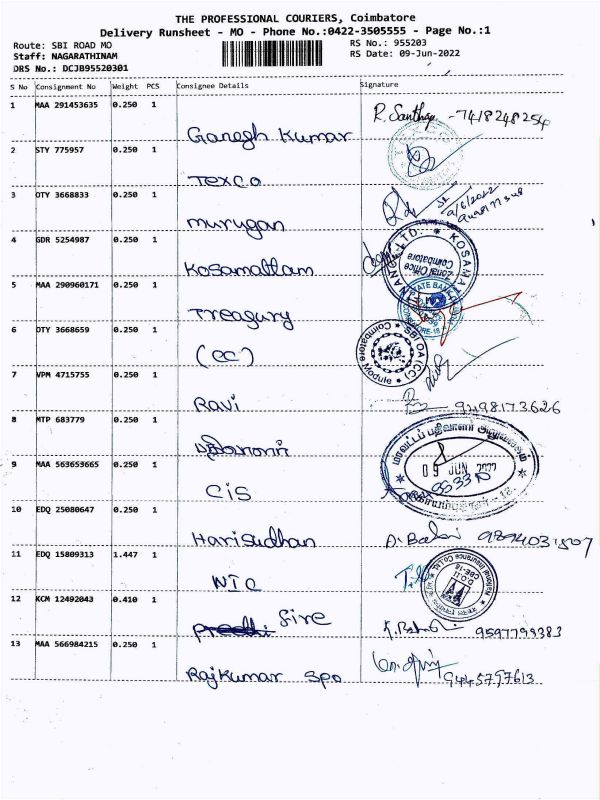 THE PROFESSIONAL COURIERS, Coimbatore
Delivery Runsheet - MO - Phone No.:0422-3505555 - Page No.:1
Route: SBI ROAD MO
RS No.: 955203
Staff: NAGARATHINAM
RS Date: 09-Jun-2022
DRS No.: DCJB95520301
S No Consignment No Weight PCS Consignee Details Signature
1 MAA 291453635 0.250 1 Ganesh Kumar R. Santhya -7418248254
2 STY 775957 0.250 1 Texco
3 OTY 3668833 0.250 1 murugan 9/6/2022
4 GDR 5254987 0.250 1 Kosamattam
KOSAMATTAM
Zonal Office
Coimbatore
5 MAA 290960171 0.250 1 Treasury
STATE BANK
6 OTY 3668659 0.250 1 (CC)
SBI OA (CC)
Coimbatore Module
7 VPM 4715755 0.250 1 Ravi 9498173626
8 MTP 683779 0.250 1 பதிவாளர்
மாவட்டப் பதிவாளர் அலுவலகம்
09 JUN 2022
கோயம்புத்தூர் - 18.
9 MAA 563653665 0.250 1 CIS
10 EDQ 25080647 0.250 1 Harisudhan
11 EDQ 15809313 1.447 1 NIC
12 KCM 12492043 0.410 1 fire 9597799383
13 MAA 566984215 0.250 1 Rajkumar spo 9445797613